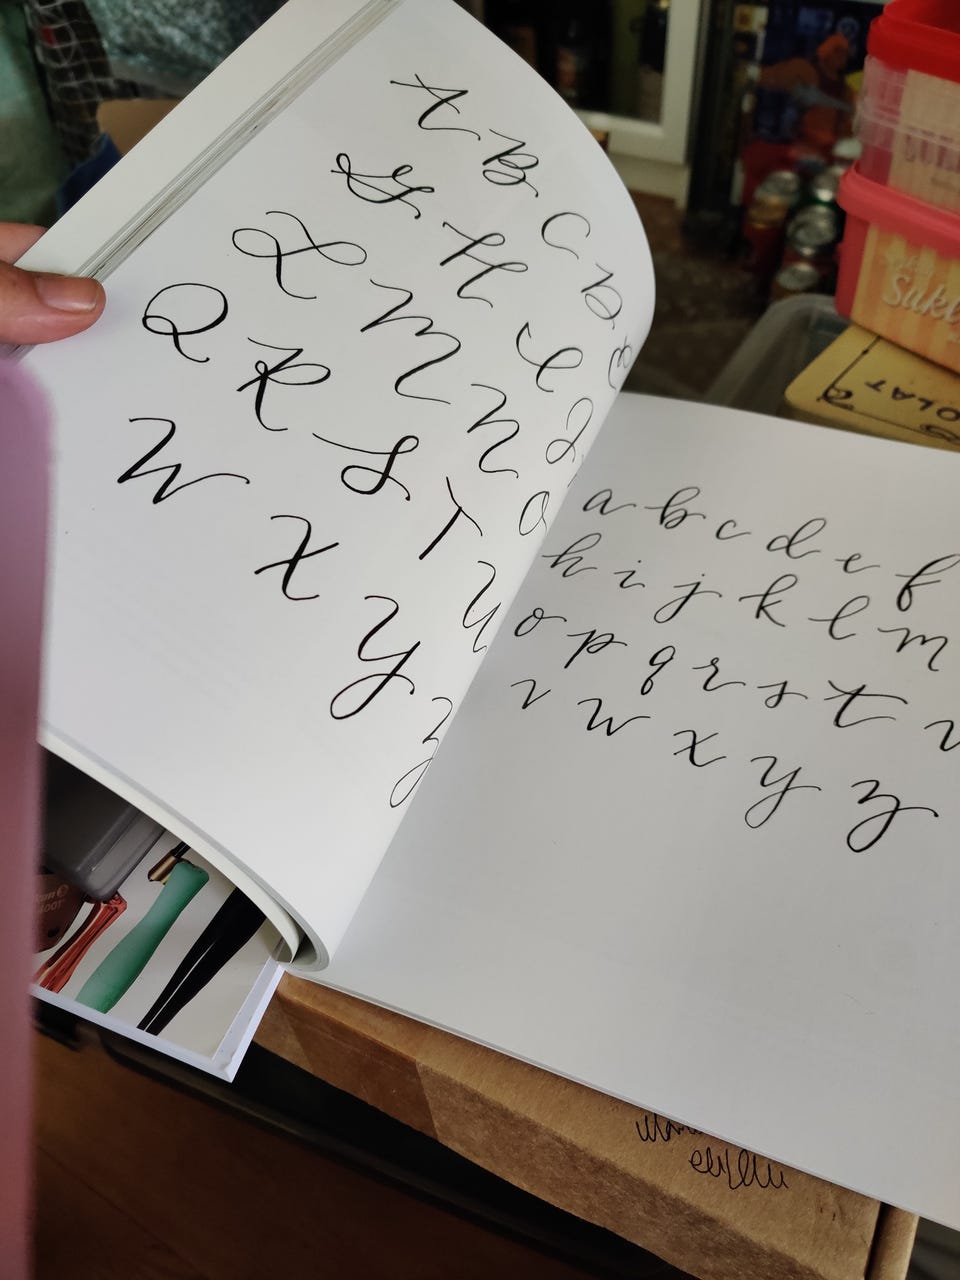 A B C D E
G H I J
L M N O
Q R S T U
W X Y Z
a b c d e f
h i j k l m
o p q r s t
v w x y z
Sukl
OLAT